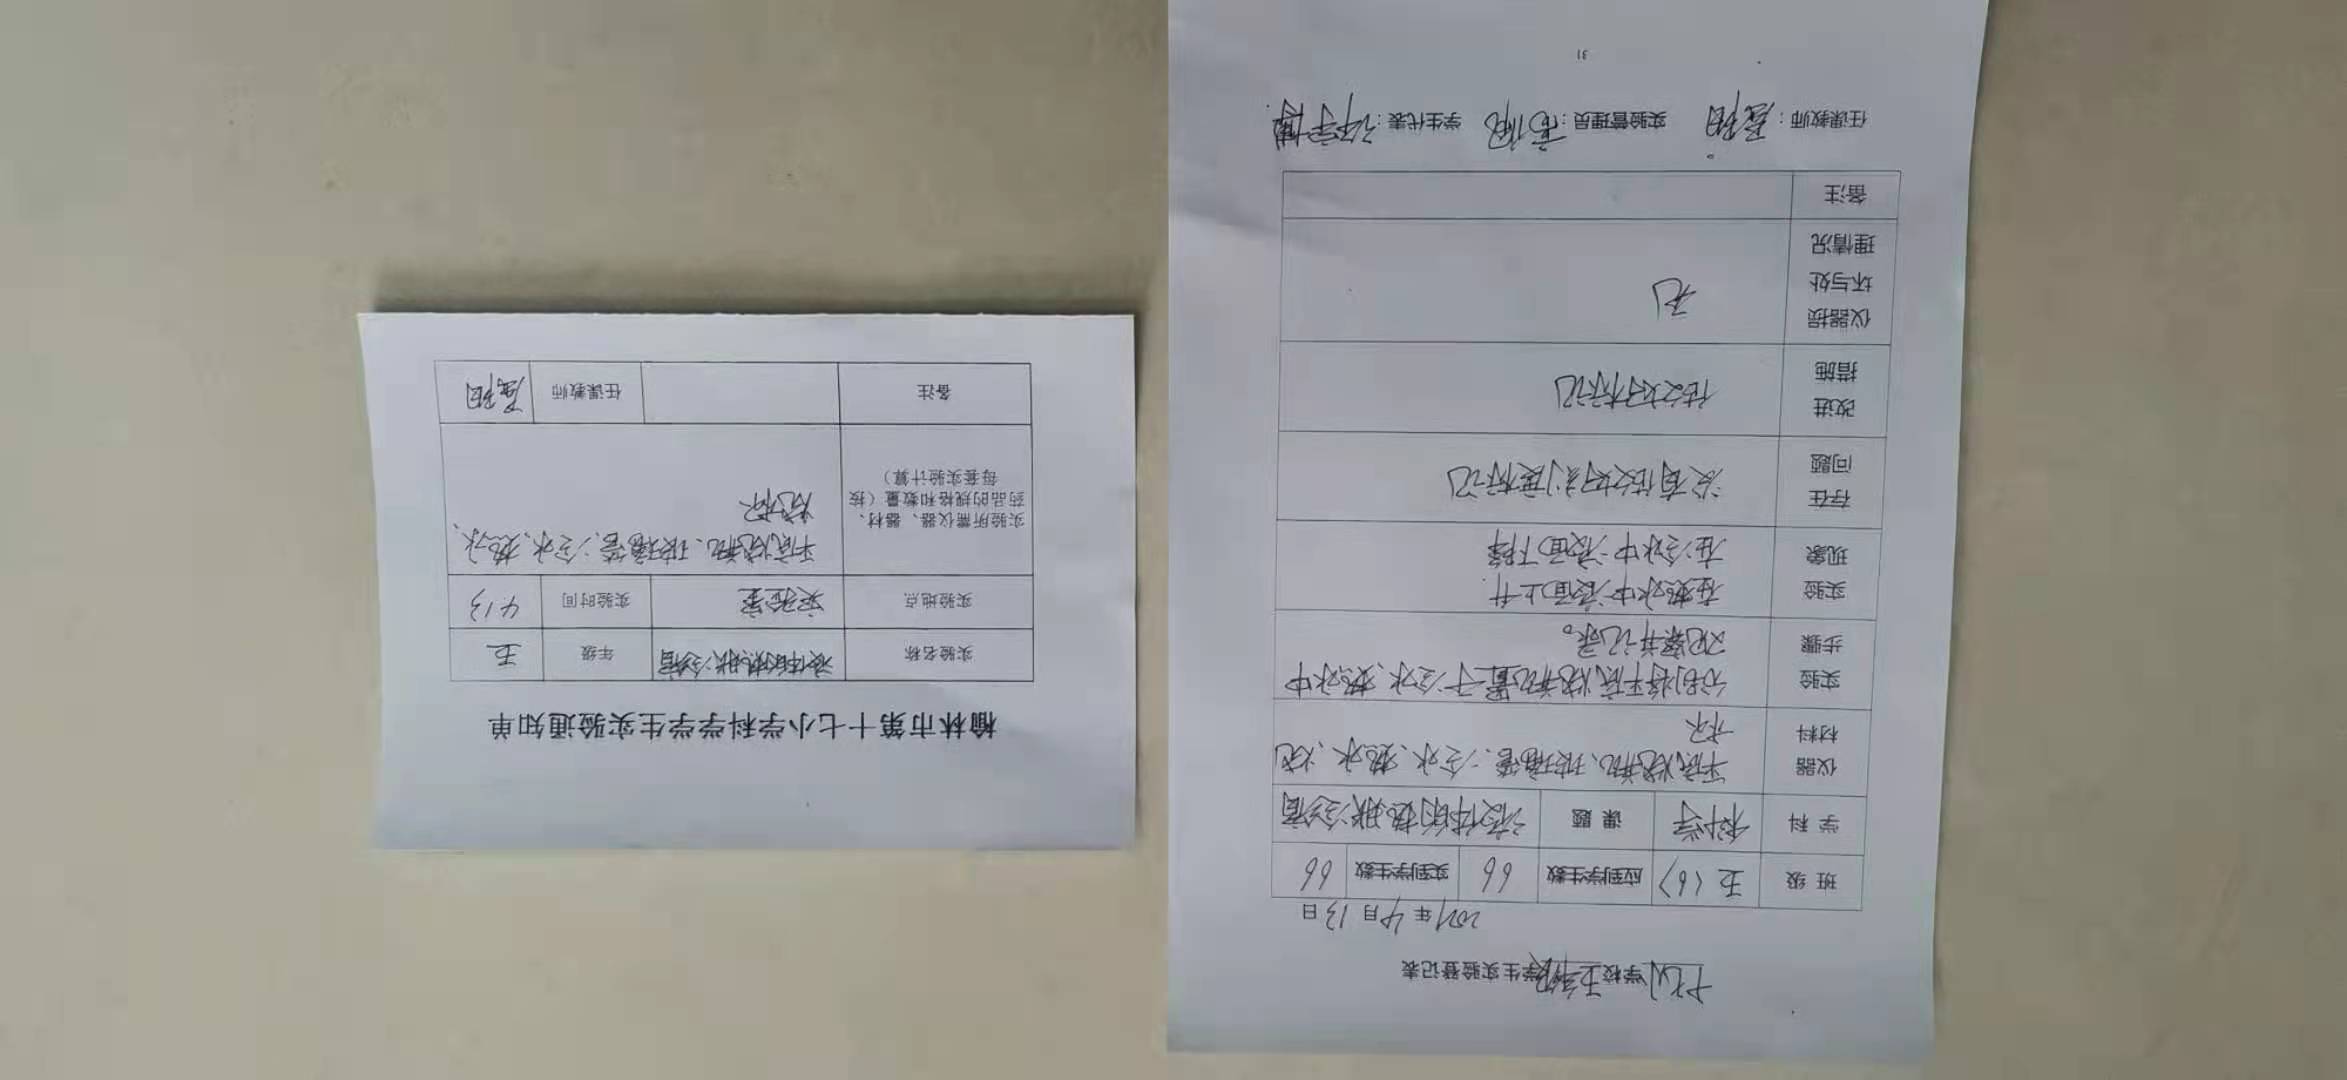 榆林市第十七小学科学学生实验通知单
实验名称 液体的热胀冷缩 年级 五
实验地点 实验室 实验时间 4.13
实验所需仪器、器材、
药品的规格和数量（按
每套实验计算）
平底烧瓶、玻璃管、冷水、热水、
烧杯
备注 任课教师
十七小学校五年级学生实验登记表
年4月13日
班级 五（6） 应到学生数 66 实到学生数 66
学科 科学 课题 液体的热胀冷缩
仪器
材料
平底烧瓶、玻璃管、冷水、热水、烧
杯
实验
步骤
分别将平底烧瓶置于冷水、热水中
观察并记录。
实验
现象
在热水中液面上升.
在冷水中液面下降
存在
问题
没有做好刻度标记
改进
措施
做好标记
仪器损
坏与处
理情况
无
备注
任课教师： 实验管理员： 学生代表：许宇博
31